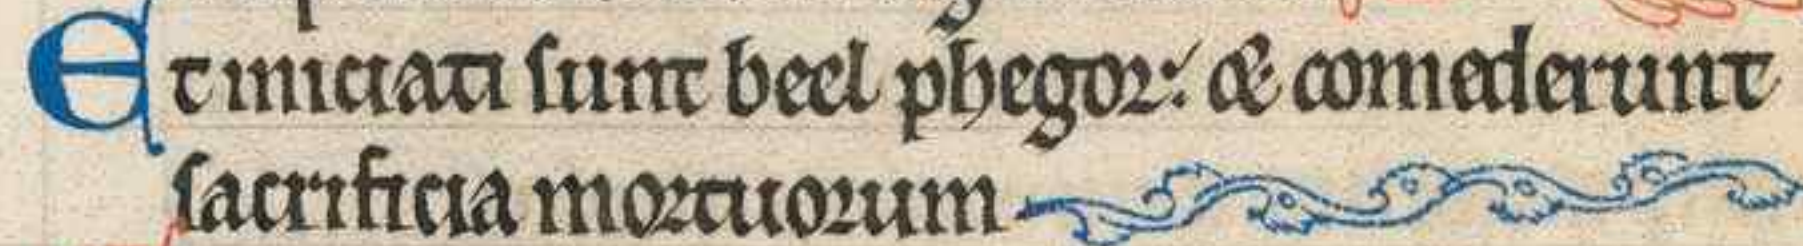 Et iniciati sunt beel phegor: & comederunt
sacrificia mortuorum